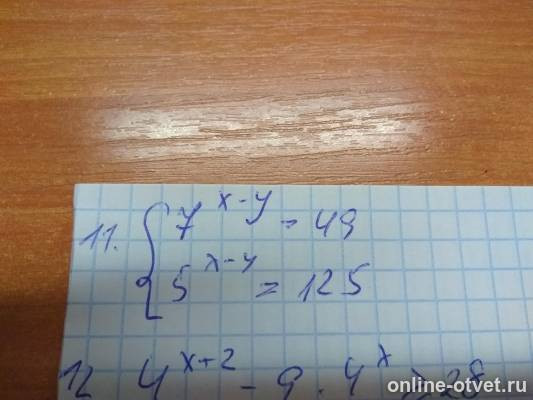 11. { 7^(x-y) = 49
5^(x-y) = 125
12 4^(x+2) - 9 · 4^x ≥ 28
online-otvet.ru